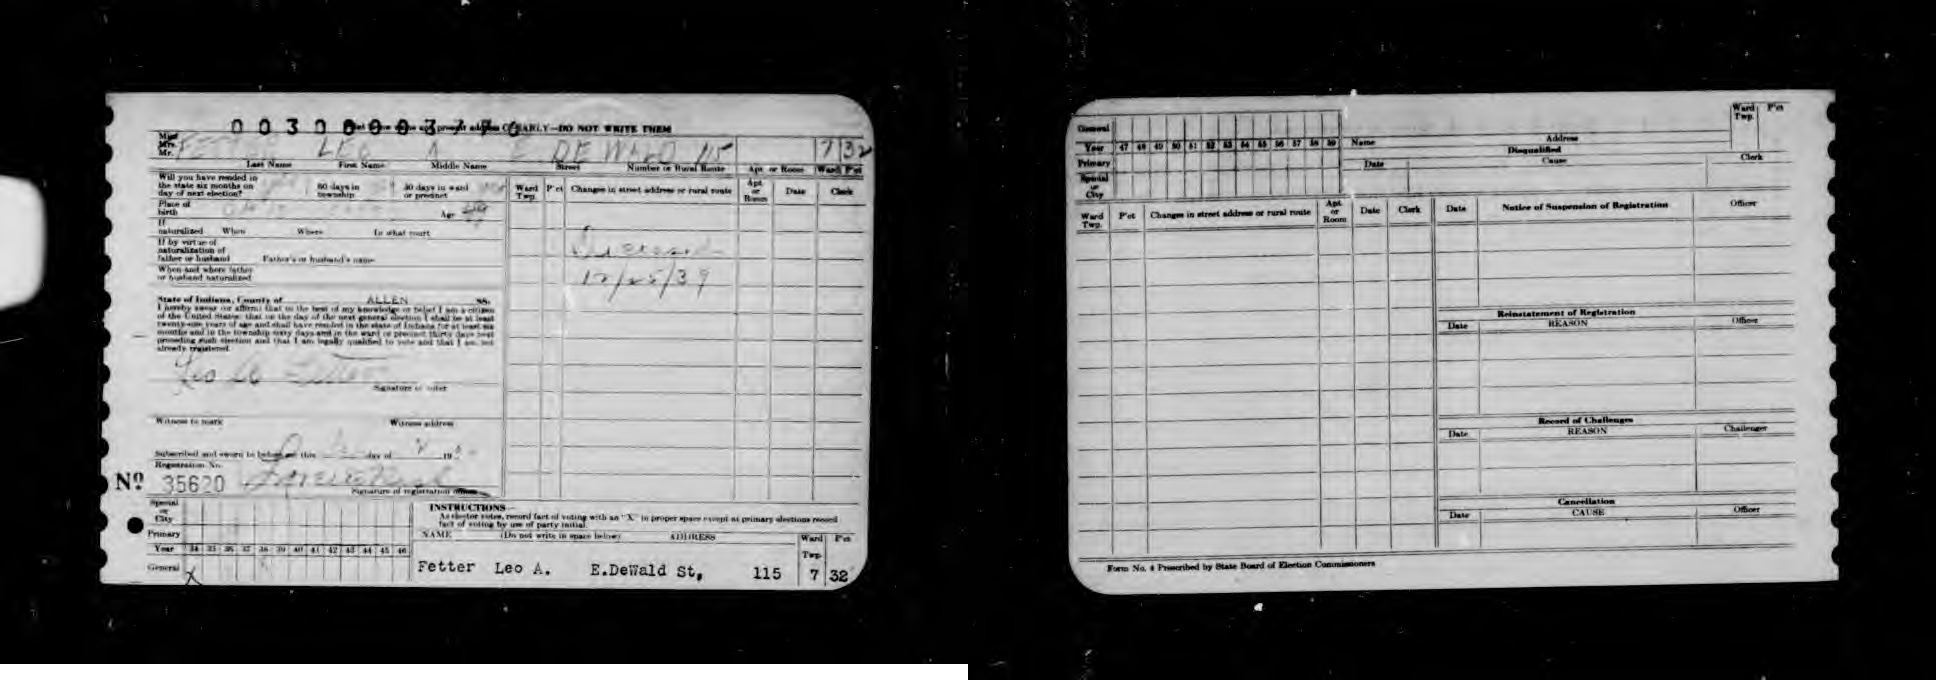 CLEARLY—DO NOT WRITE THEM
Miss
Mrs.
Mr.
LEO A E DE WALD 115 7 32
Last Name First Name Middle Name Street Number or Rural Route Apt. or Room Ward P'ct
Will you have resided in
the state six months on
day of next election?
60 days in
township
30 days in ward
or precinct
Place of
birth
Age
If
naturalized When Where In what court
If by virtue of
naturalization of
father or husband Father's or husband's name
When and where father
or husband naturalized
State of Indiana, County of ALLEN SS.
I hereby swear (or affirm) that to the best of my knowledge or belief I am a citizen
of the United States; that on the day of the next general election I shall be at least
twenty-one years of age and shall have resided in the state of Indiana for at least six
months and in the township sixty days and in the ward or precinct thirty days next
preceding such election and that I am legally qualified to vote and that I am not
already registered.
Leo A Fetter
Signature of voter
Witness to mark Witness address
Subscribed and sworn to before me this day of 19
Registration No.
Nº 35620
Signature of registration officer
Ward
Twp. P'ct Changes in street address or rural route Apt.
or
Room Date Clerk
Deceased
12/25/39
Special
or
City
Primary
Year 34 35 36 37 38 39 40 41 42 43 44 45 46
General X
INSTRUCTIONS—
As elector votes, record fact of voting with an "X" in proper space except at primary elections record
fact of voting by use of party initial.
NAME (Do not write in space below) ADDRESS Ward
Twp. P'ct
Fetter Leo A. E.DeWald St, 115 7 32
General
Year 47 48 49 50 51 52 53 54 55 56 57 58 59
Primary
Special
or
City
Name Address Ward
Twp. P'ct
Disqualified
Date Cause Clerk
Ward
Twp. P'ct Changes in street address or rural route Apt.
or
Room Date Clerk
Date Notice of Suspension of Registration Officer
Reinstatement of Registration
Date REASON Officer
Record of Challenges
Date REASON Challenger
Cancellation
Date CAUSE Officer
Form No. 4 Prescribed by State Board of Election Commissioners